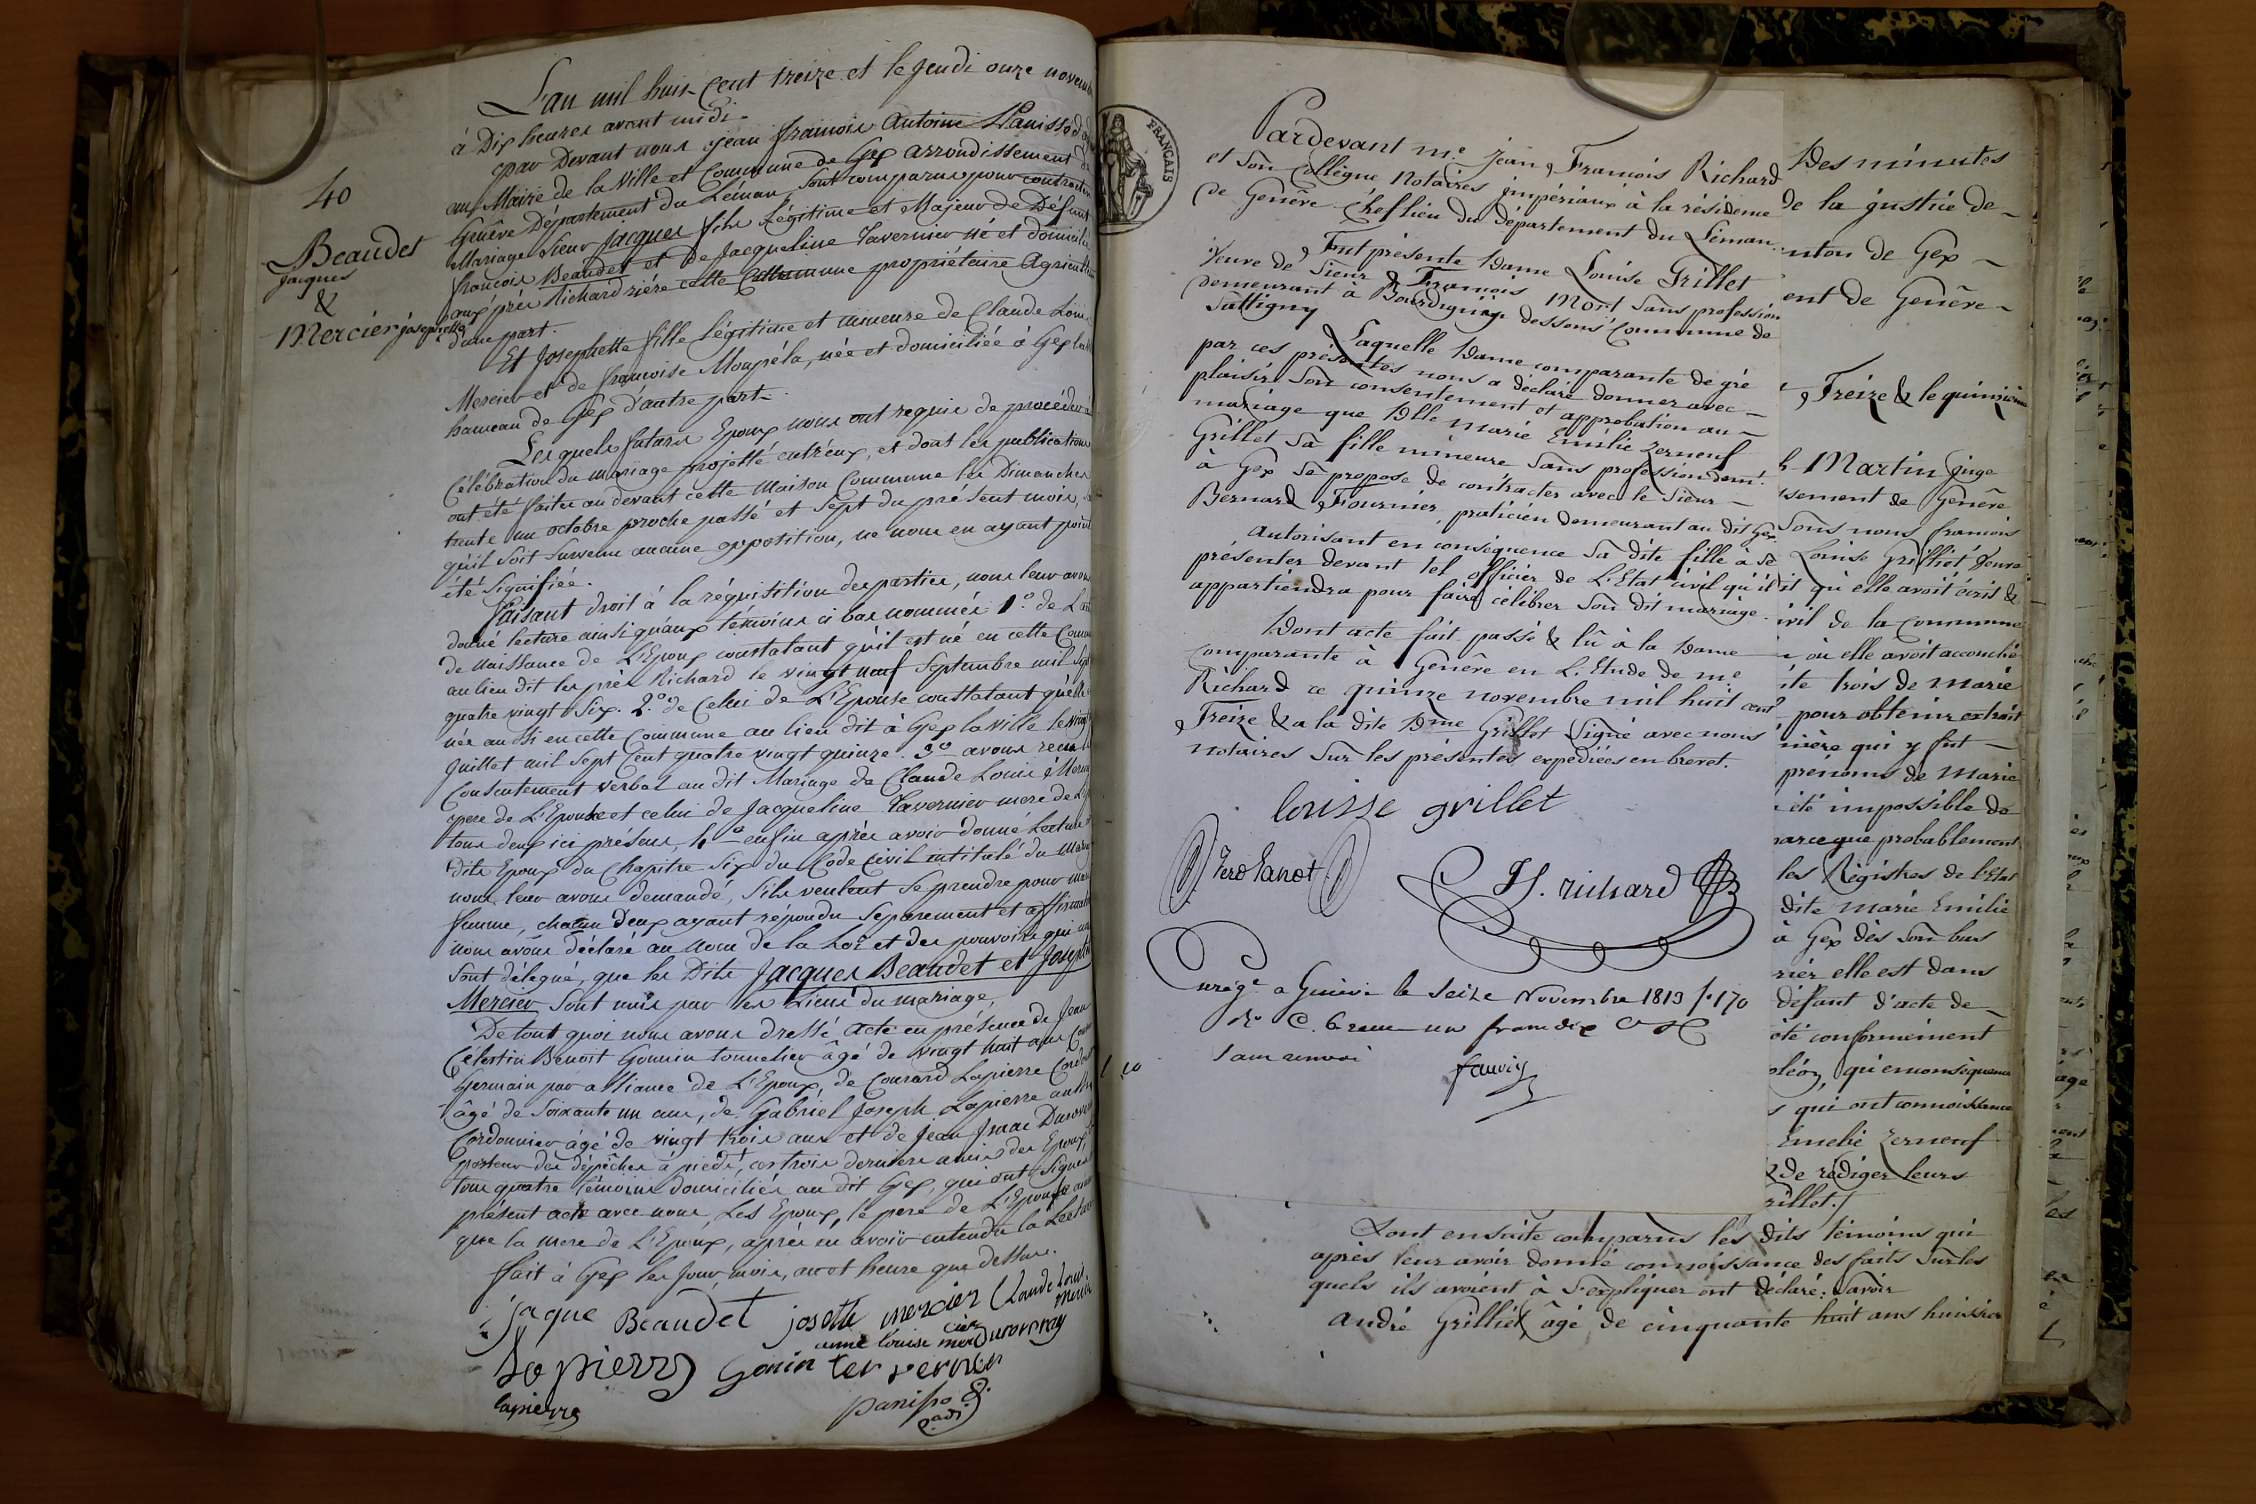 40
Beaudet
Jacques
&
Mercier josephette
L'an mil huit Cent treize et le Jeudi onze novem
à Dix heures avant midi.
par Devant nous Jean françois Antoine Panisso
au Maire de la Ville et Commune de Gex arrondissement de
Genève Département du Léman, sont comparus pour contracter
Mariage Sieur Jacques fils Légitime et Majeur de Défunt
françois Beaudet et de Jacqueline Tavernier né et domicilié
aux prés Richard rière cette Commune propriétaire Agricult
d'une part.
Et Josephette fille Légitime et mineure de Claude Louis
Mercier et de françoise Moupéla, née et domiciliée à Gex la
hameau de Gex d'autre part.
Lesquels futurs Epoux nous ont requis de procéder à
Célébration du mariage projetté entr'eux, et dont les publications
ont été faites au devant cette Maison Commune les Dimanches
trente un octobre proche passé et Sept du présent mois,
qu'il soit survenu aucune opposition, ne nous en ayant point
été signifiée.
faisant droit à la réquisition des parties, nous leur avons
donné lecture ainsi qu'aux témoins ci bas nommés 1.º de L'acte
de Naissance de L'Epoux constatant qu'il est né en cette Comm
au lieu dit les prés Richard le vingt neuf Septembre mil sept
quatre vingt Six. 2.º de Celui de L'Epouse constatant qu'elle
née aussi en cette Commune au lieu dit à Gex la ville le vingt
Juillet mil sept Cent quatre vingt quinze. 3º avons reçu le
Consentement verbal au dit Mariage de Claude Louis Mercier
père de L'Epouse et celui de Jacqueline Tavernier mere de L'Ep
tous deux ici présens, 4º enfin après avoir donné Lecture
dits Epoux du Chapitre Six du Code Civil intitulé du Mariage
nous leur avons demandé, s'ils veulent se prendre pour mari
femme, chacun d'eux ayant répondu séparement et affirmati
nous avons déclaré au nom de la Loi et des pouvoirs qui nous
sont délegué, que les Dits Jacques Beaudet et Joseph
Mercier sont unis par les Liens du mariage,
De tout quoi nous avons dressé acte en présence de Jean
Célestin Benoit Gonnin tonnelier âgé de vingt huit ans Cousin
Germain par alliance de L'Epoux, de Conrard Lapierre Cordon
âgé de soixante un ans, de Gabriel Joseph Lapierre aussi
Cordonnier âgé de vingt trois ans et de Jean Duroveray
porteur des dépêches à pieds, ces trois derniers amis des Epoux,
tous quatre témoins domiciliés au dit Gex, qui ont Signé
présent acte avec nous, Les Epoux, le pere de L'Epouse ainsi
que la mere de L'Epoux, après en avoir entendu la Lecture
fait à Gex les jour, mois, an et heure que dessus.
jaque Beaudet josette mercier Claude Louis
Mercier
anne louise mercier Duroveray
Lapierre Gonin
lapierre
panisso
FRANCAIS
Pardevant me. Jean, François Richard
et son Collègue Notaires impériaux à la résidence
de Genève Chef lieu du Département du Léman.
Fut présente Dame Louise Grillet
Veuve de Sieur François Mort sans profession
demeurant à Bourdigny dessous Commune de
Sattigny
Laquelle Dame comparante de gré
par ces présentes nous a déclaré donner avec
plaisir son consentement et approbation au
mariage que Dlle Marie Emilie Zerneuf
Grillet sa fille mineure sans profession demt.
à Gex se propose de contracter avec le Sieur
Bernard Fournier, praticien demeurant au dit Gex.
Autorisant en conséquence sa dite fille à se
présenter devant tel officier de L'Etat civil qu'il
appartiendra pour faire célébrer son dit mariage.
Dont acte fait passé & lû à la Dame
Comparante à Genève en L'Etude de me.
Richard ce quinze novembre mil huit cent
Treize & a la dite Dme Grillet signé avec nous
notaires sur les présentes expédiées en brevet.
louisse grillet
J. f. richard
Enregé. a Genève le seize Novembre 1813 fo. 170
Ro. C. 6 reçu un franc dix
sans renvoi
fauvin
Des minutes
de la justice de
nton de Gex
ent de Genêve
Treize & le quinzième
Martin Juge
ssement de Genêve
Sons nous francois
Louise Grilliet Veuve
it qu'elle avoit écrit &
ivil de la Commune
où elle avoit accouché
ite trois de Marie
pour obtenir extrait
nière qui y fut
prénoms de Marie
été impossible de
parceque probablement
les Régistres de l'Etat
dite Marie Emilie
à Gex dès son bas
rier elle est dans
défaut d'acte de
oté conformément
oléon, qu'en conséquence
s qui ont connoissance
Emelie Zerneuf
& de rédiger leurs
rillet.
Sont ensuite comparus les dits témoins qui
après leur avoir donné connoissance des faits sur les
quels ils avoient à s'expliquer ont déclaré: Savoir
André Grilliet âgé de cinquante huit ans huissier